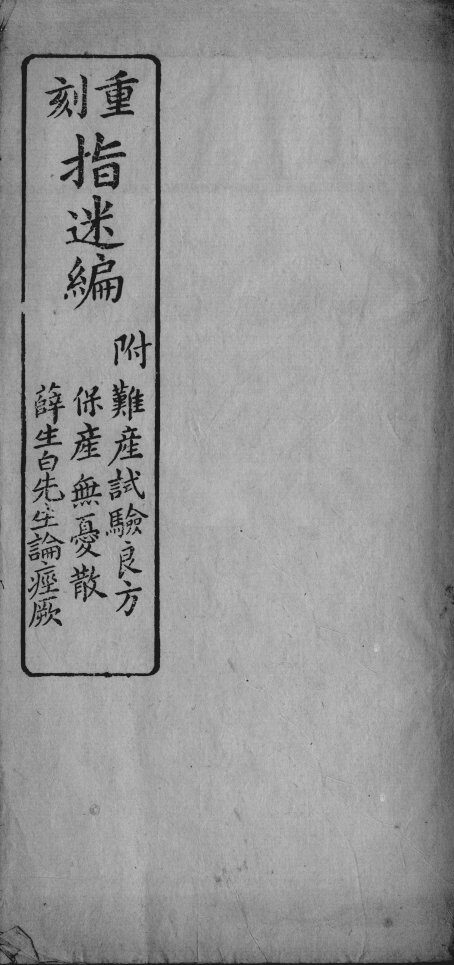 重刻
指迷編
附
難產試驗良方
保產無憂散
薛生白先生論痙厥